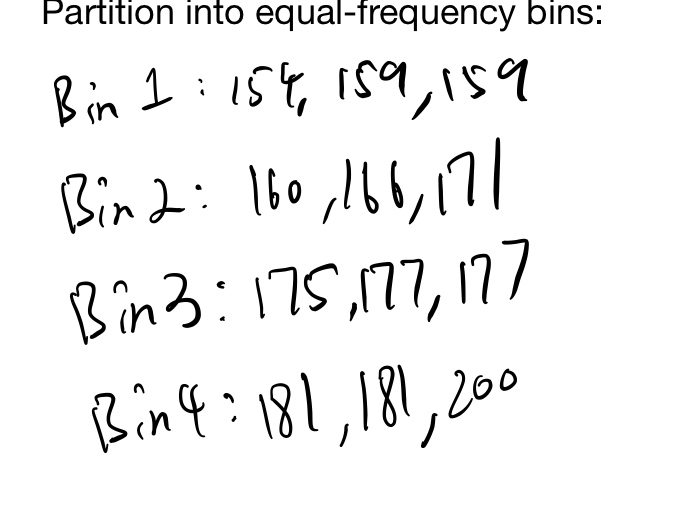 Partition into equal-frequency bins:
Bin 1: 154, 159, 159
Bin 2: 160, 166, 171
Bin 3: 175, 177, 177
Bin 4: 181, 181, 200